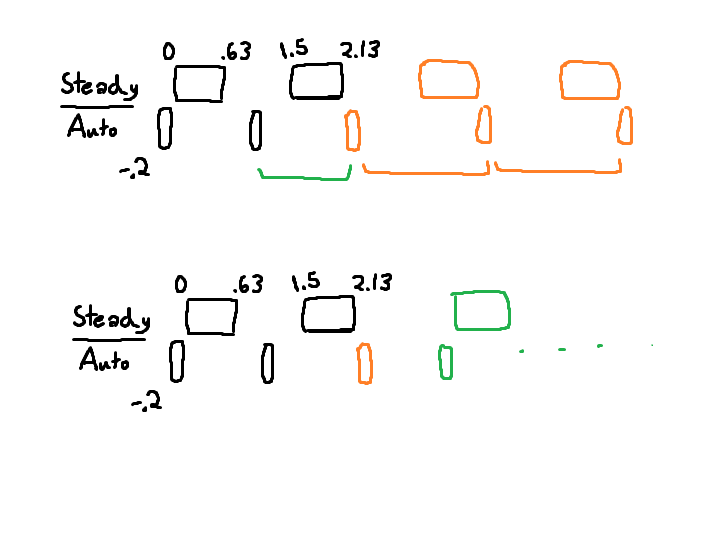 0 .63 1.5 2.13
Steady
Auto
-.2
0 .63 1.5 2.13
Steady
Auto
-.2